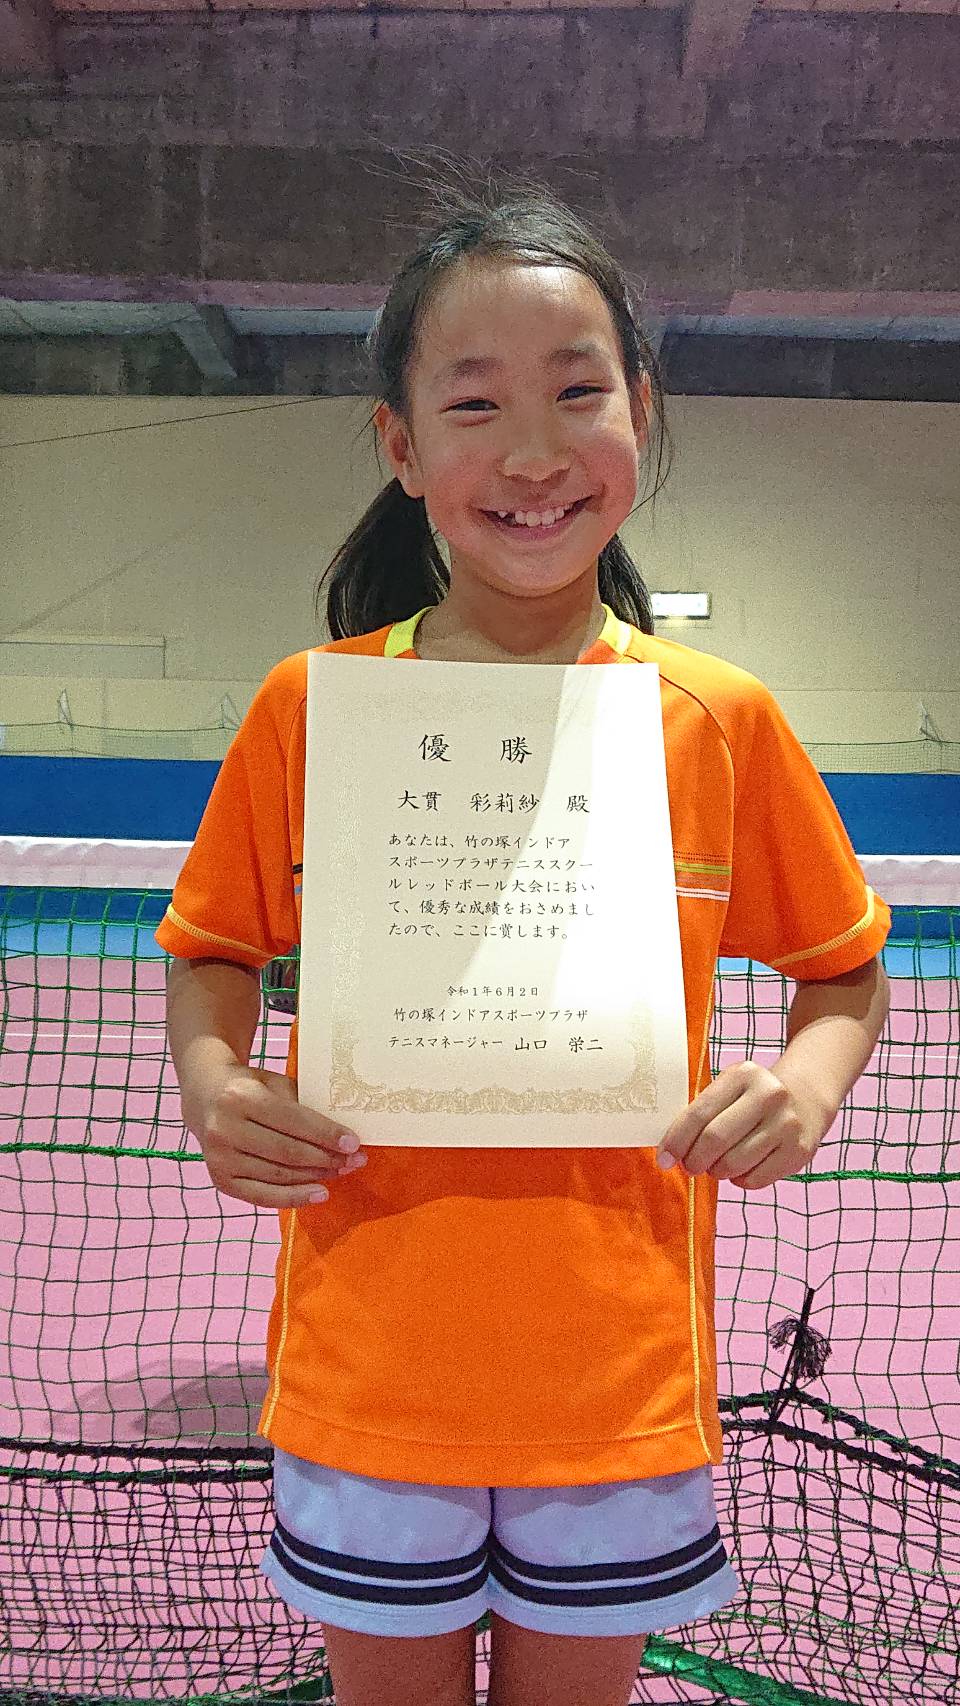 優 勝
大貫 彩莉紗 殿
あなたは、竹の塚インドア
スポーツプラザテニススクー
ルレッドボール大会におい
て、優秀な成績をおさめまし
たので、ここに賞します。
令和1年6月2日
竹の塚インドアスポーツプラザ
テニスマネージャー 山口 栄二